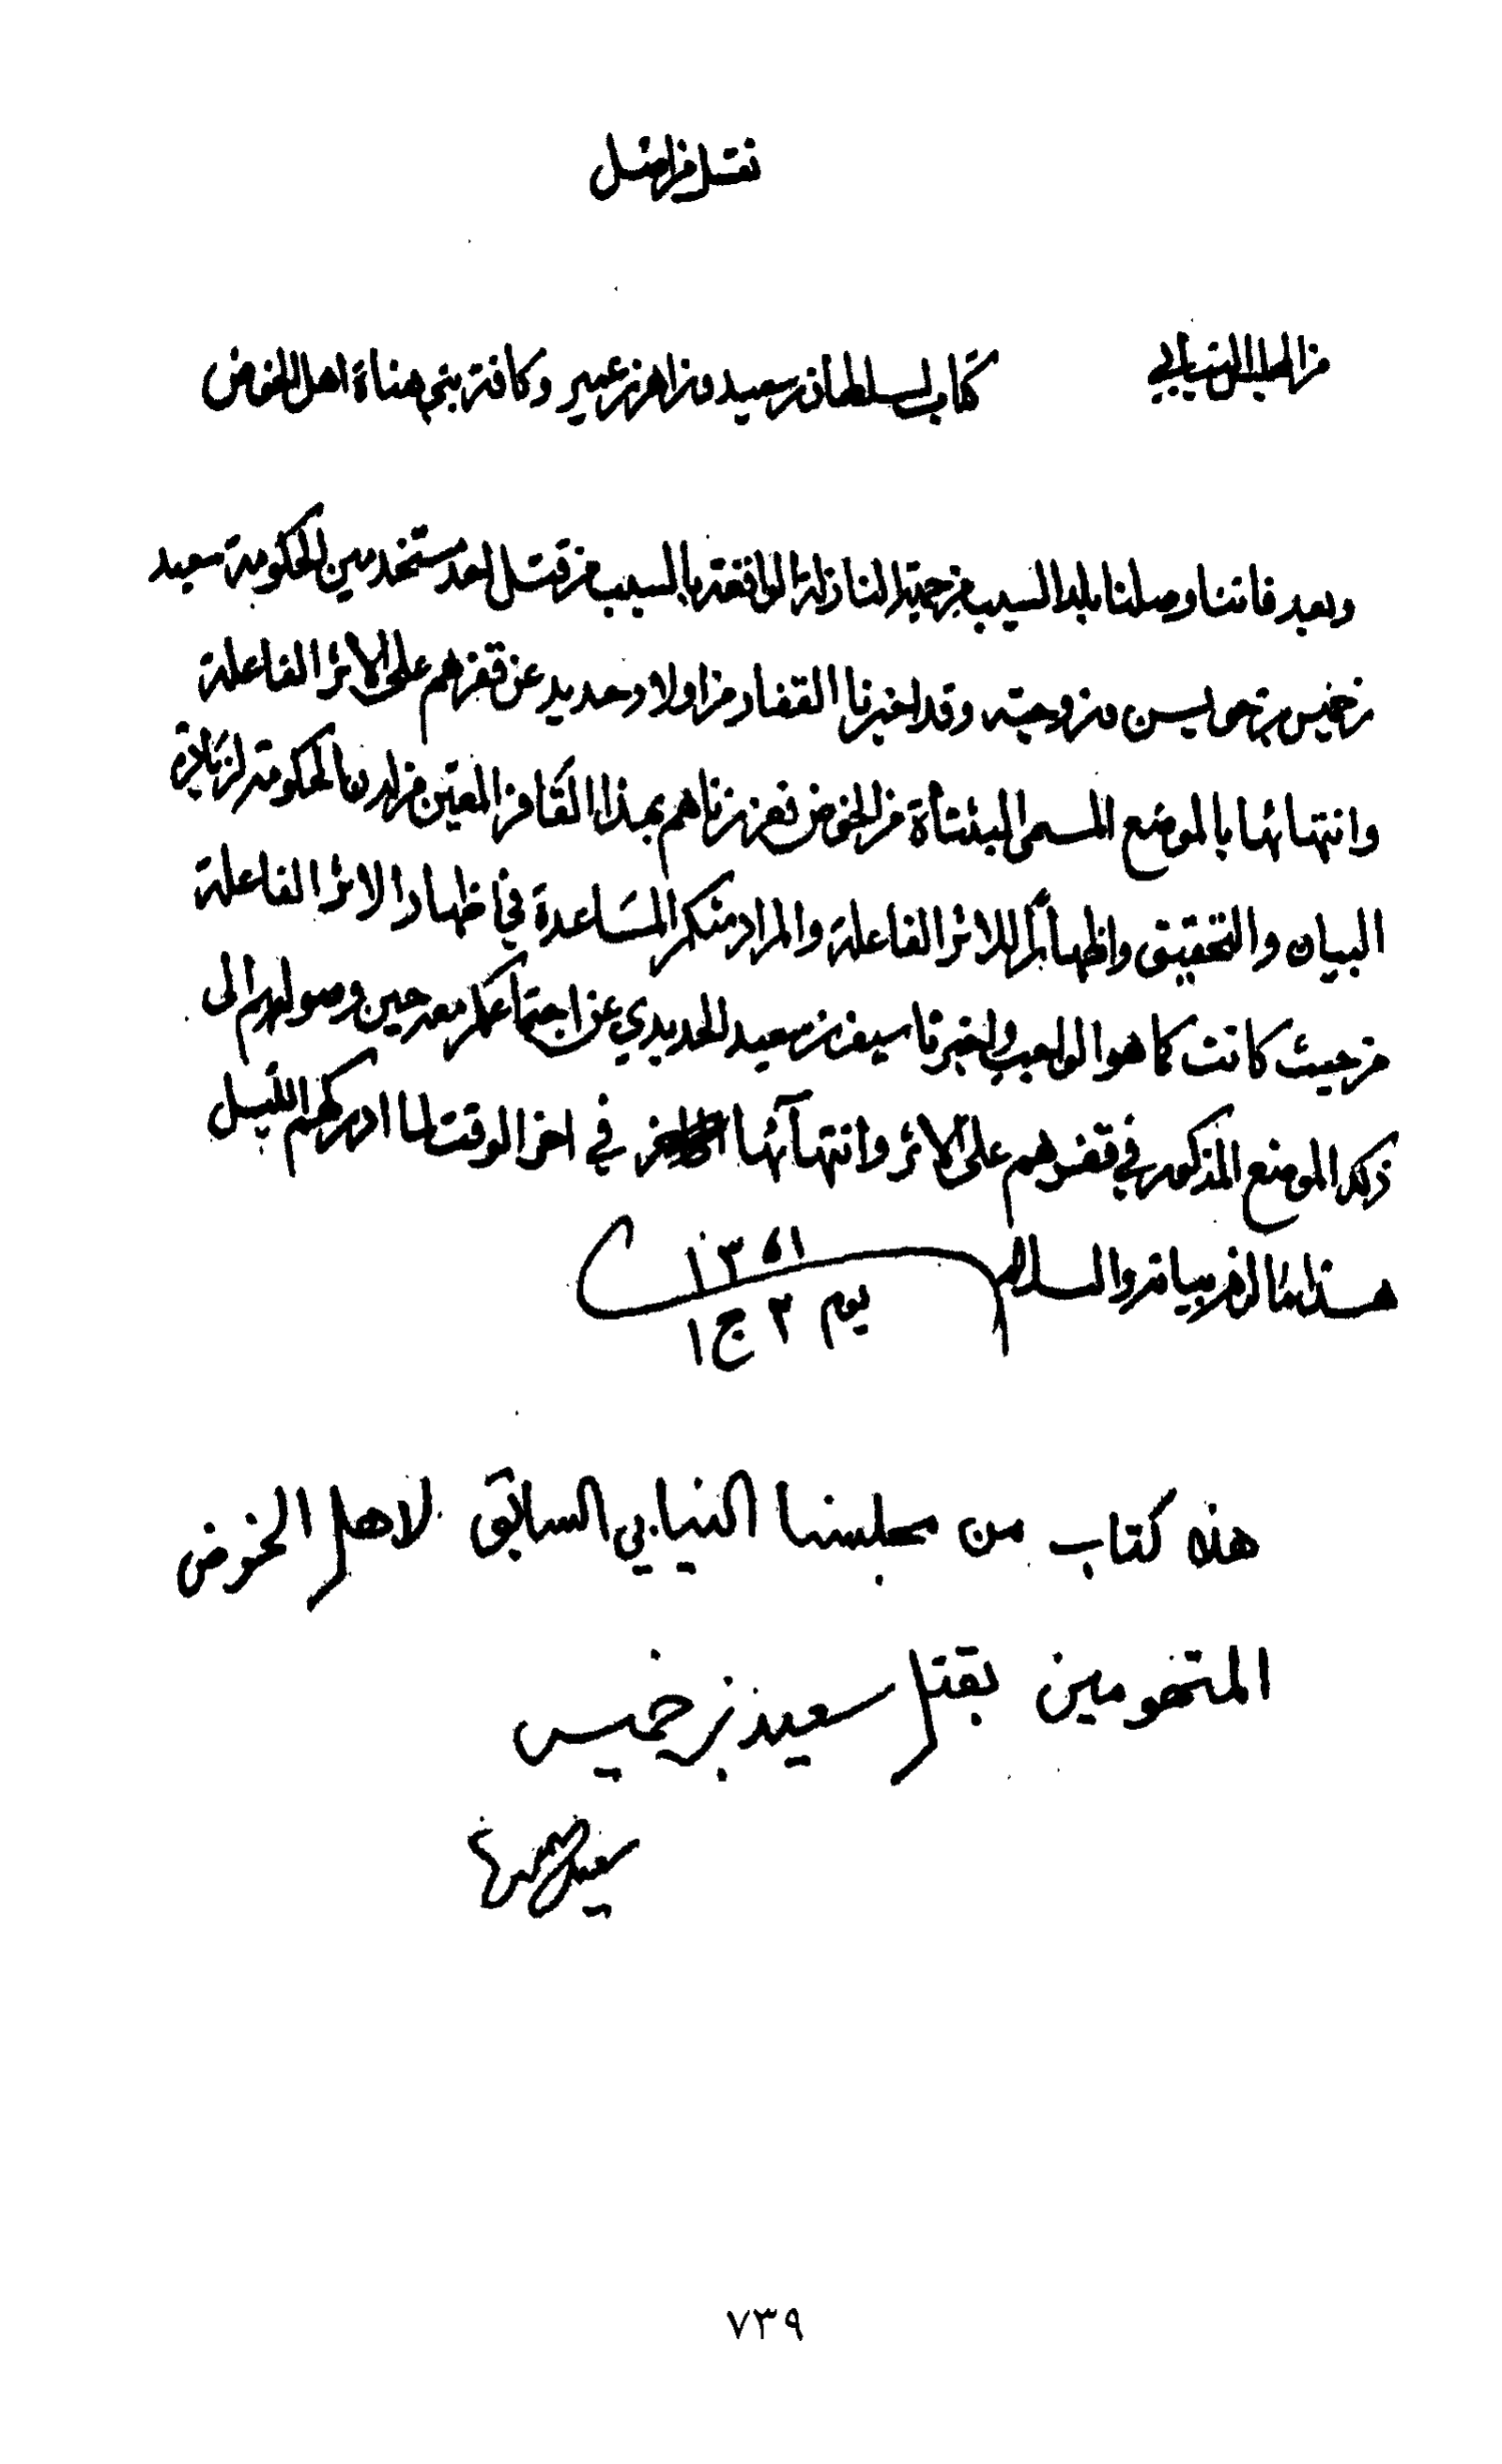 نقل من الاصل
من المجلس النيابي
كتاب لسلطان بن سعيد وزاهر بن عمير وكافة بني هناة اهل الخوض
وبعد فاننا وصلنا بلد السيب من جهة النازلة الواقعة بالسيب من قتل احد مستخدمين الحكومة سعيد
بن خميس وزوجته وقد اخبرنا القفاد من اولاد حديد عن قفرهم على الاثر الفاعلة
وانتهائها بالموضع المسمى من الخوض بهذا من لدن الحكومة لزيادة
البيان والتحقيق واظهارا للاثر الفاعلة والمراد منكم المساعدة في اظهار الاثر الفاعلة
من حيث كانت كما هو الواجب واخبرنا سيف بن سعيد الحديدي عن اجتماعكم معه حين وصولهم الى
ذلك الموضع المذكور في قفرهم على الاثر وانتهائها في اخر الوقت لما ادركهم الليل
هذا ما لزم بيانه والسلام
١٣٥١
يوم ٢ ج ١
هذه كتاب من مجلسنا النيابي السابق لاهل الخوض
المتهومين بقتل سعيد بن خميس
٧٣٩